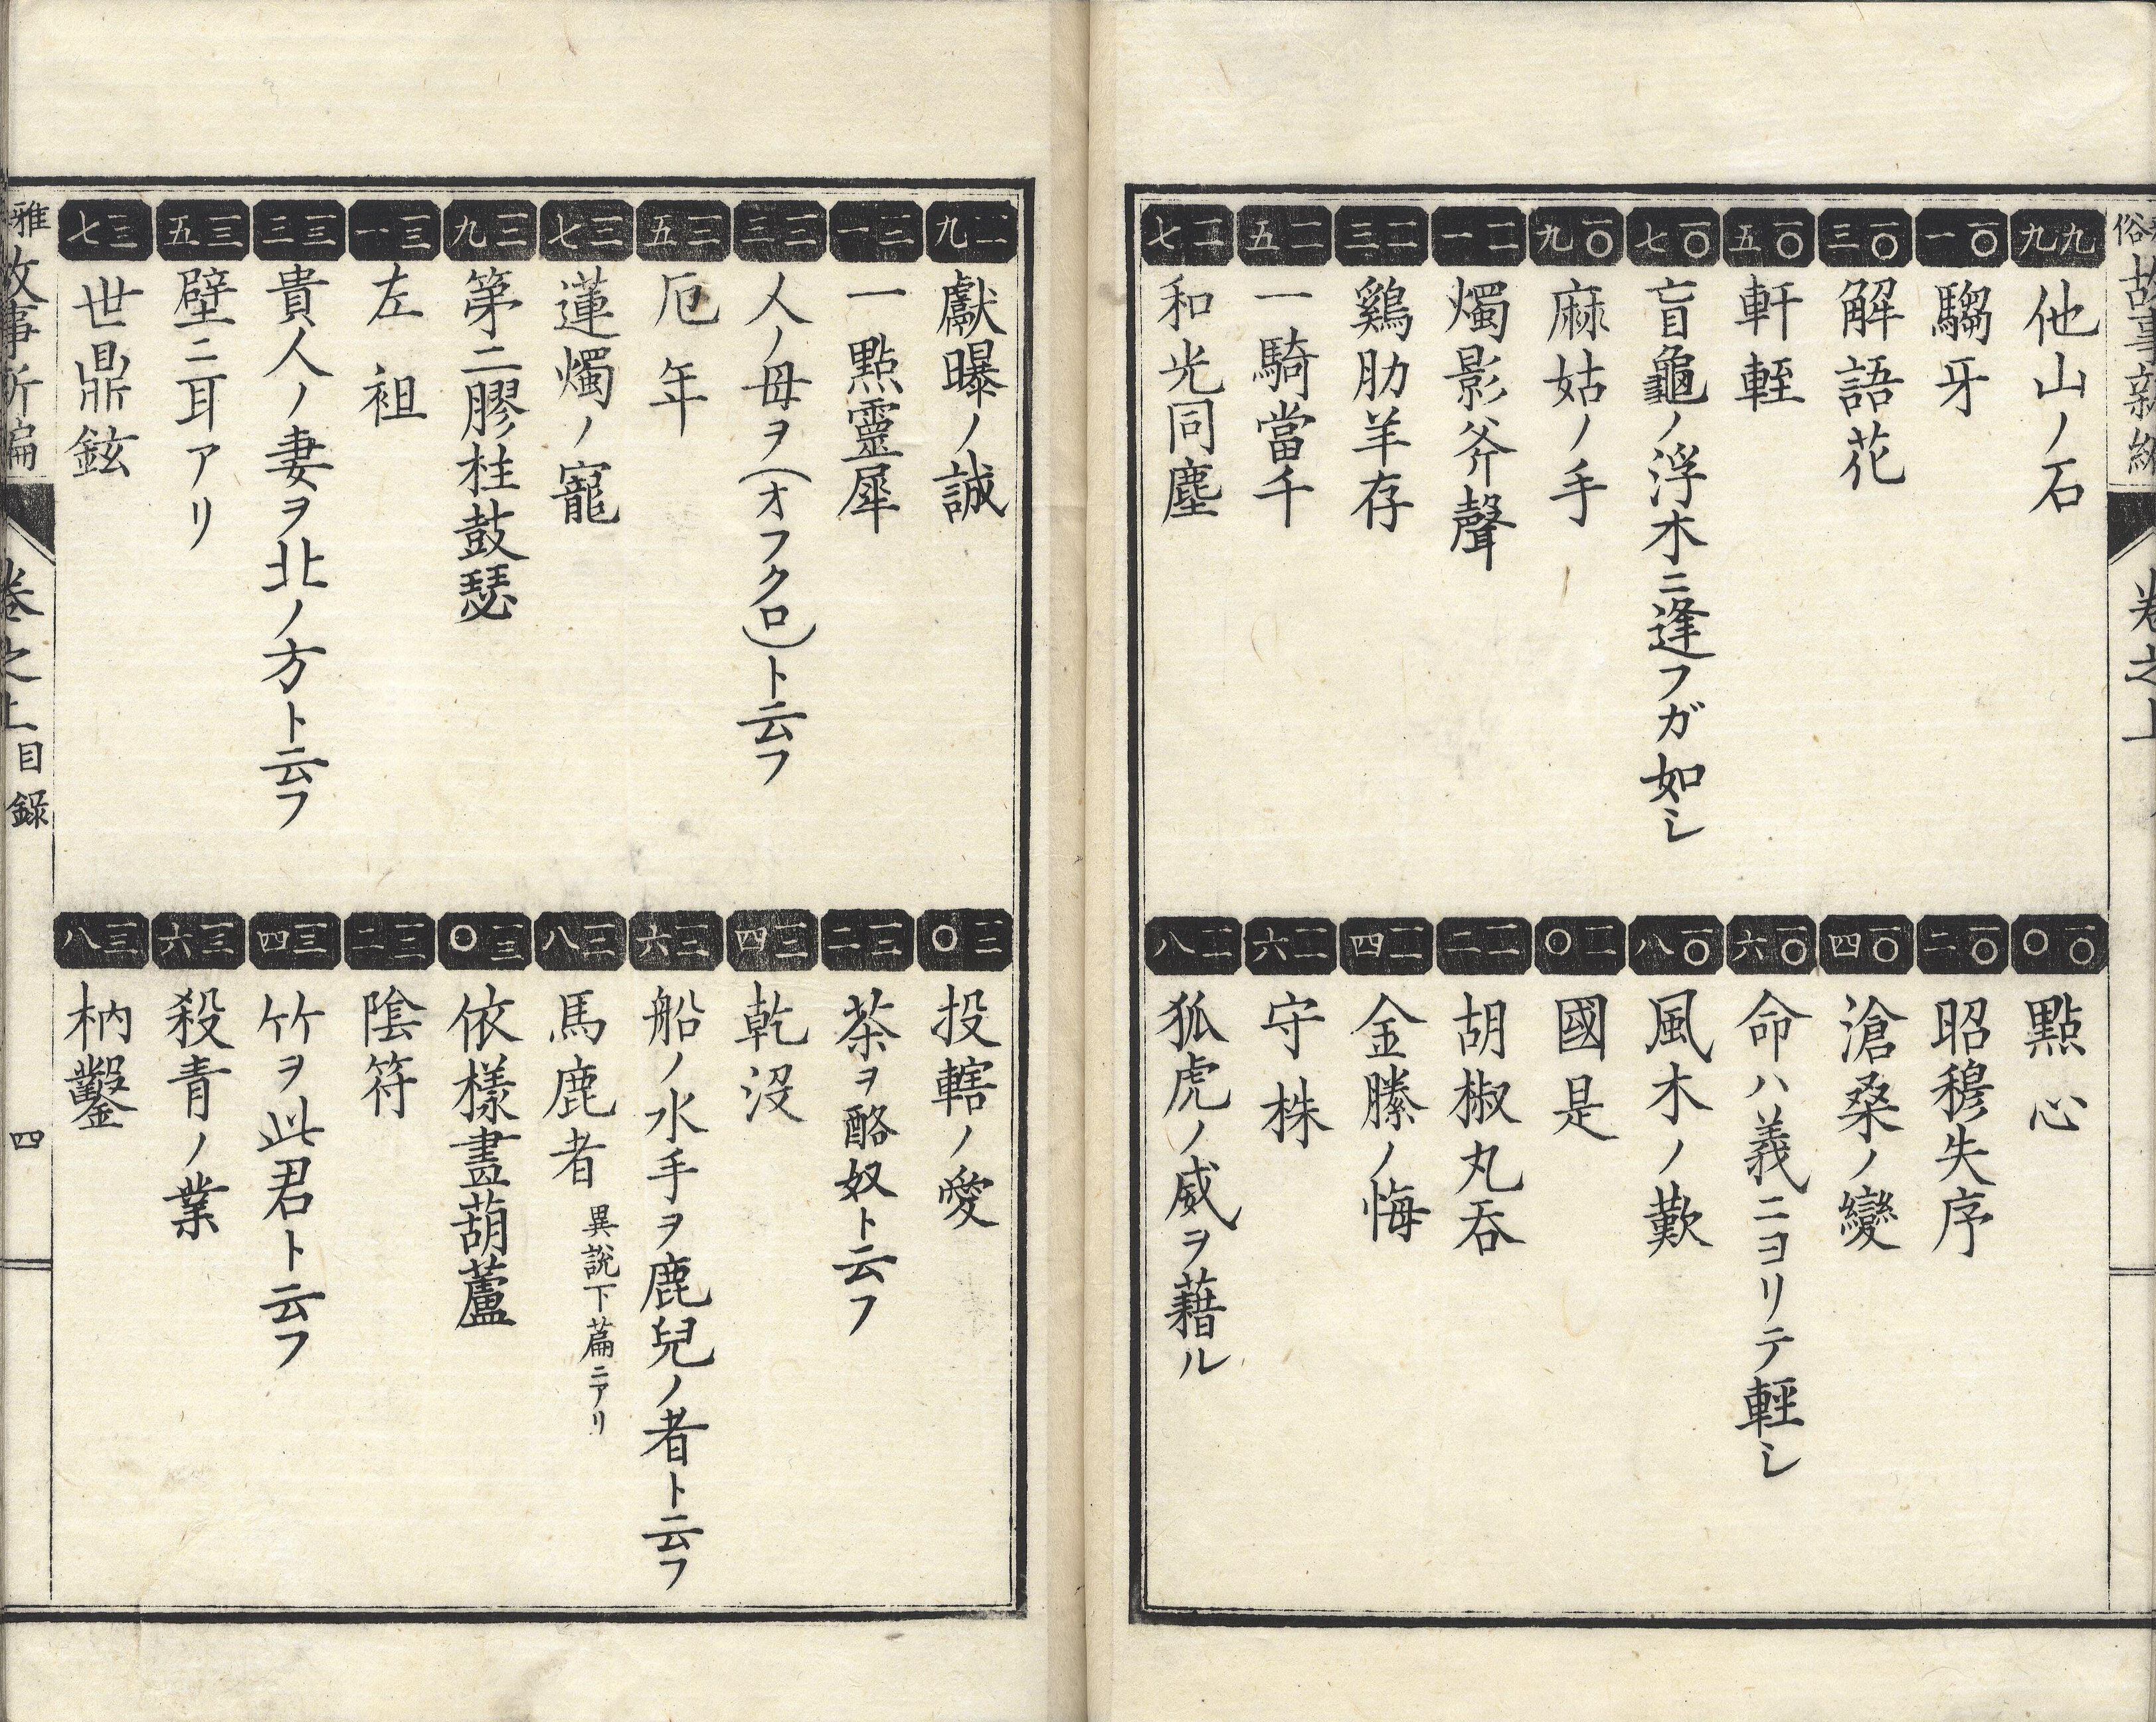 俗故事新編
卷之上
九九 他山ノ石
一〇〇 點心
一〇一 騶牙
一〇二 昭穆失序
一〇三 解語花
一〇四 滄桑ノ變
一〇五 軒輊
一〇六 命ハ義ニヨリテ輕シ
一〇七 盲龜ノ浮木ニ逢フガ如シ
一〇八 風木ノ歎
一〇九 麻姑ノ手
一一〇 國是
一一一 燭影斧聲
一一二 胡椒丸呑
一一三 鷄肋羊存
一一四 金縢ノ悔
一一五 一騎當千
一一六 守株
一一七 和光同塵
一一八 狐虎ノ威ヲ藉ル
一一九 獻曝ノ誠
一二〇 投轄ノ愛
一二一 一點靈犀
一二二 茶ヲ酪奴ト云フ
一二三 人ノ母ヲ(オフクロ)ト云フ
一二四 乾沒
一二五 厄年
一二六 船ノ水手ヲ鹿兒ノ者ト云フ
一二七 蓮燭ノ寵
一二八 馬鹿者 異說下篇ニアリ
一二九 第二膠ノ柱鼓瑟
一三〇 依樣畫葫蘆
一三一 左袒
一三二 陰符
一三三 貴人ノ妻ヲ北ノ方ト云フ
一三四 竹ヲ此君ト云フ
一三五 壁ニ耳アリ
一三六 殺青ノ業
一三七 世鼎鉉
一三八 枘鑿
雅故事新編
卷之上目錄
四